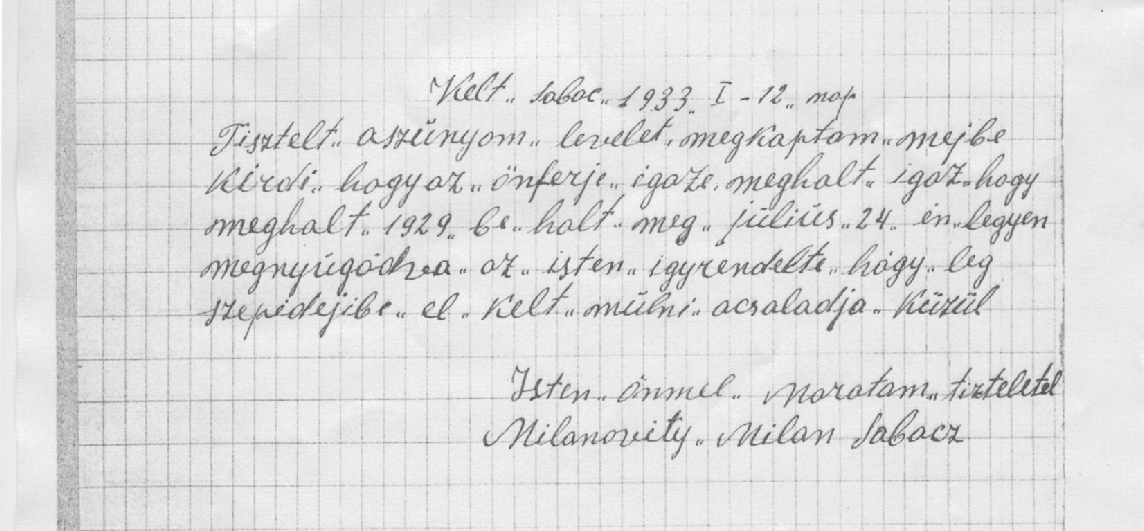 Kelt„ Sabac„ 1933„ I-12„ nap
Tisztelt„ aszünyom„ levelet„ megkaptam„ mejbe
kirdi„ hogyaz„ önferje„ igaze„ meghalt„ igaz„ hogy
meghalt„ 1929„ be„ halt„ meg„ július„ 24„ én„ legyen
megnyúgódva„ az„ isten„ igyrendelte„ hógy„ leg
szepidejibe„ el„ kelt„ múlni„ acsaladja„ küzül
Isten„ önmel„ Moratam„ tizteletel
Milanovity„ Milan Sabacz